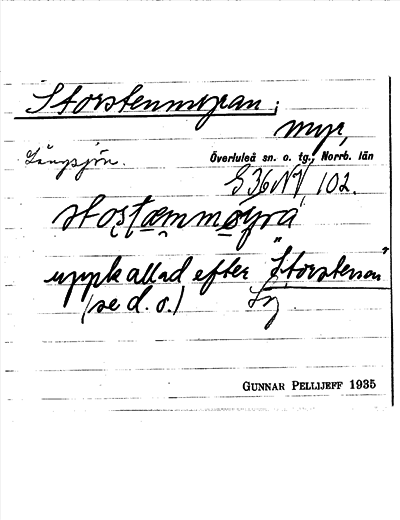 Storstenmyran;
myr,
Långsjön.
Överluleå sn. o. tg., Norrb. län
G 36 NV, 102.
stostæmmøyra
uppkallad efter "Storstenen"
(se d. o.)
GUNNAR PELLIJEFF 1935